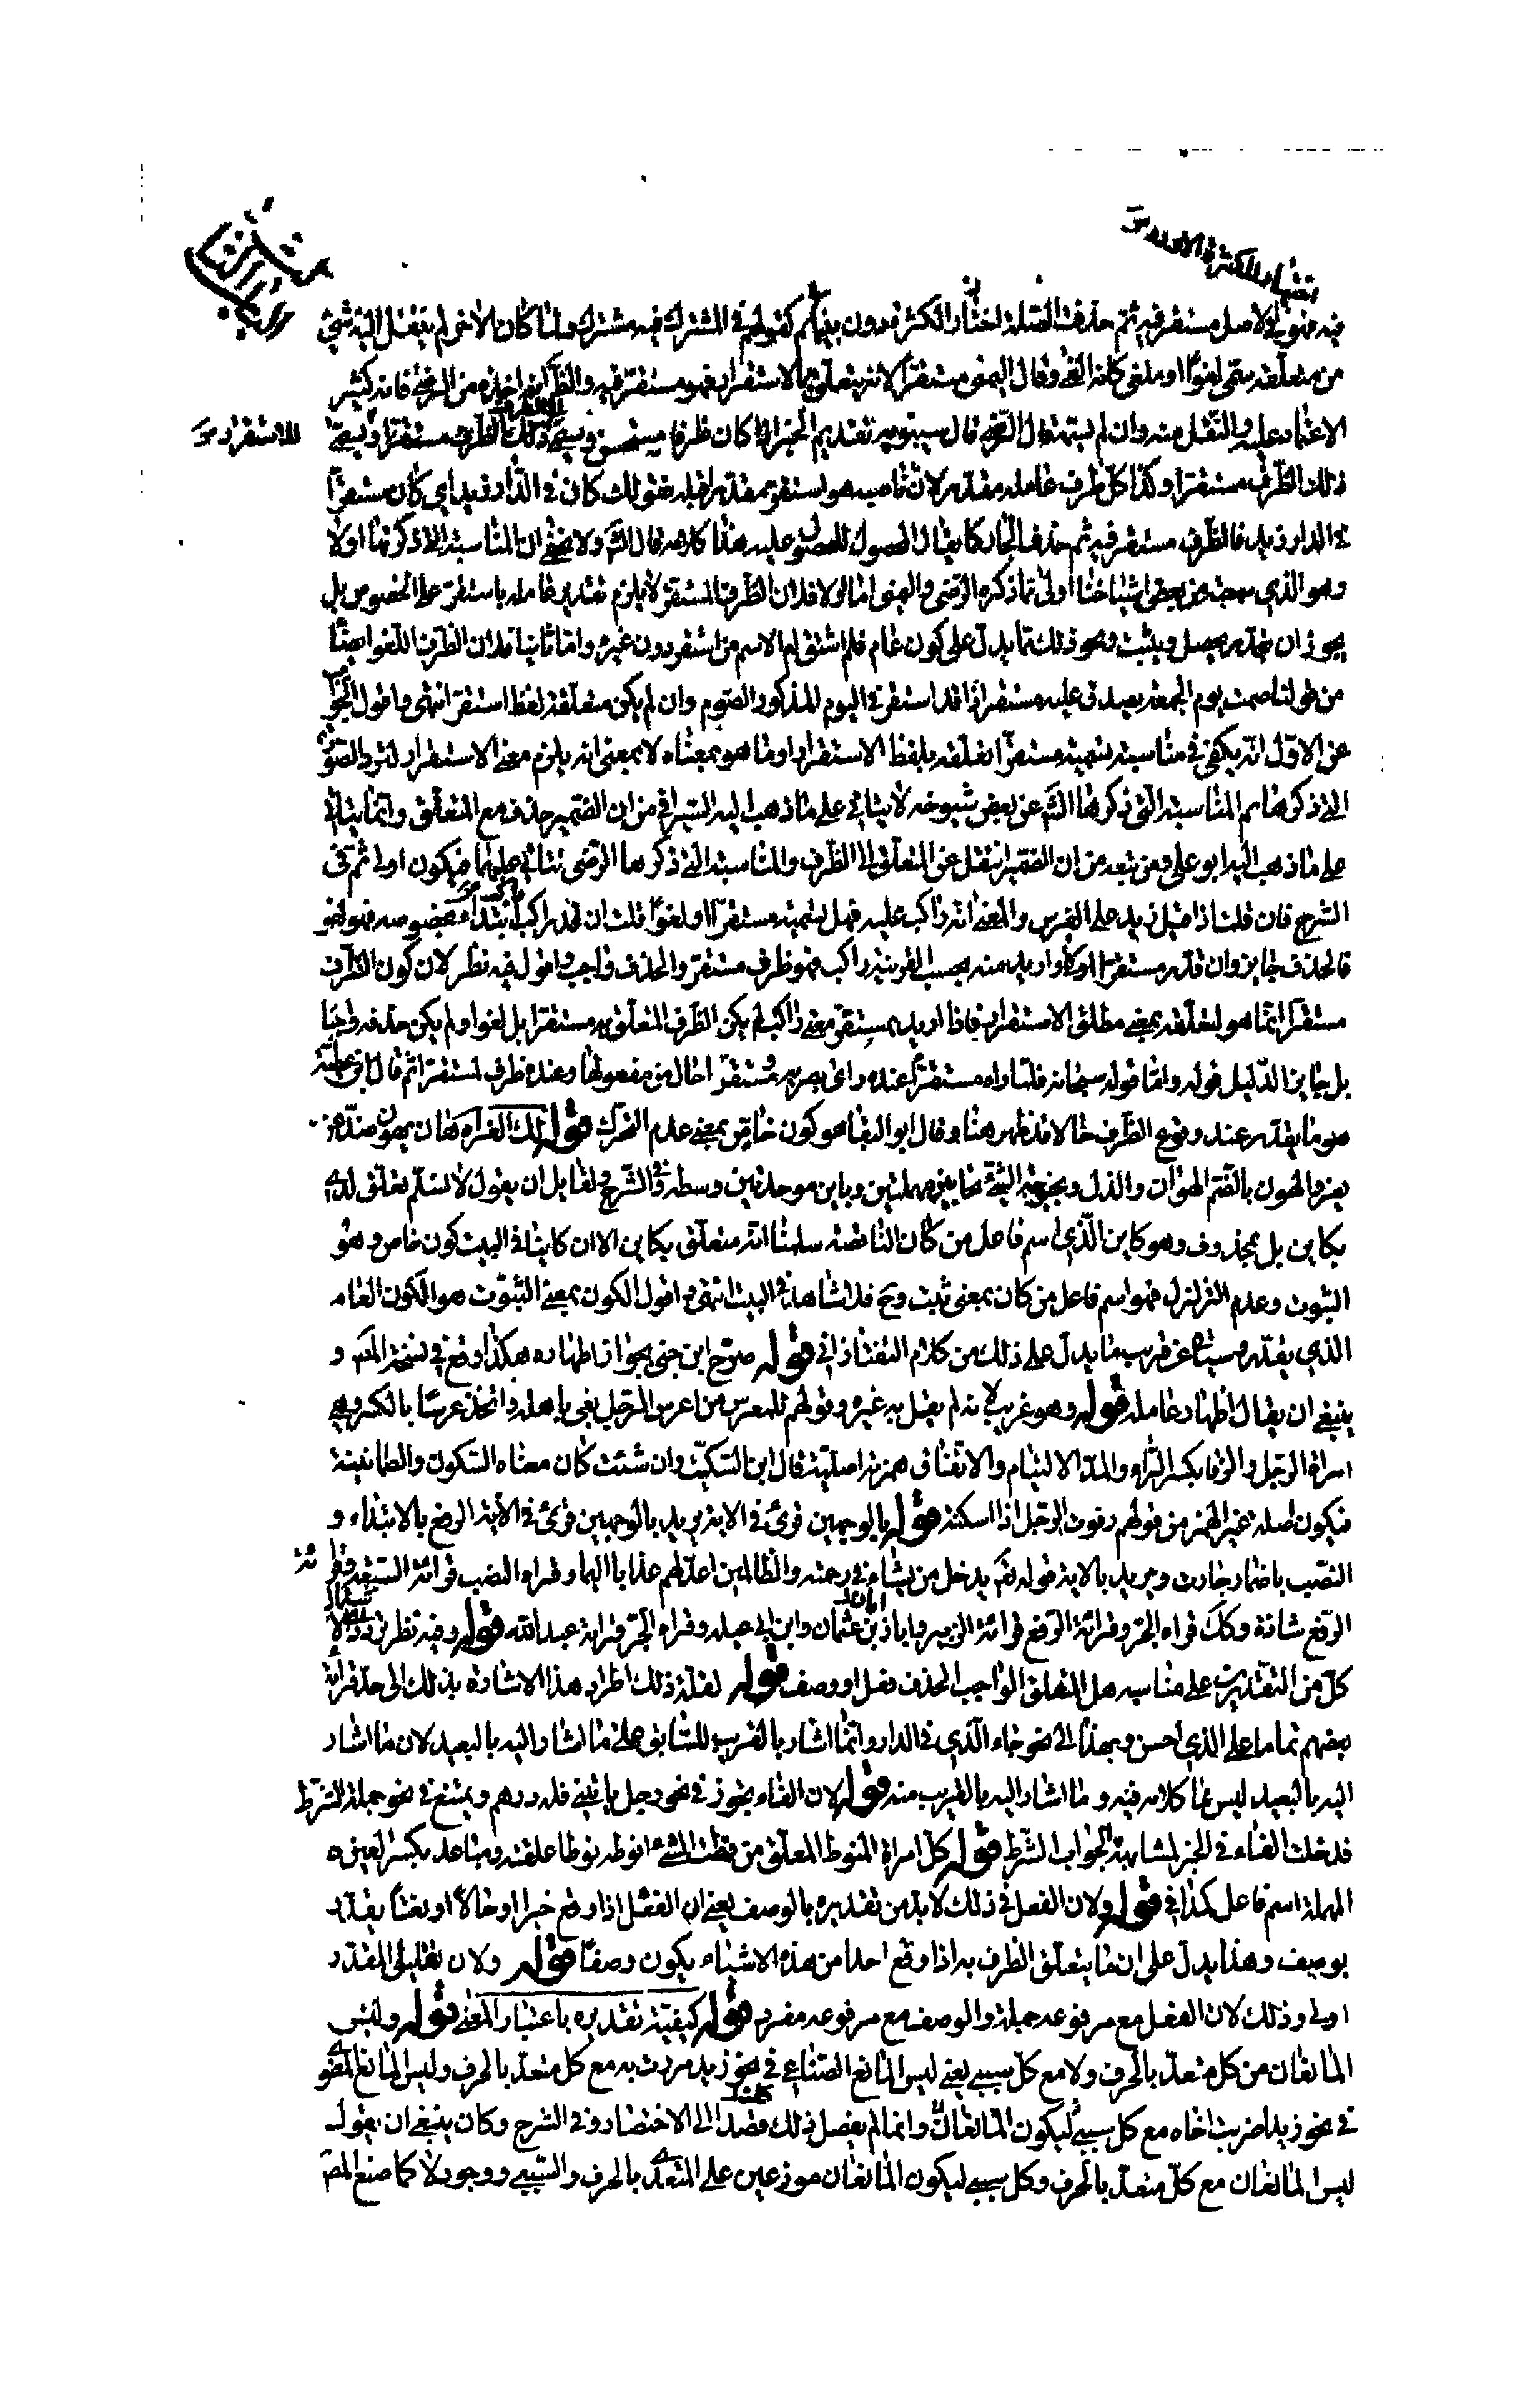 فيه فهو في الاصل مستقر فيه ثم حذفت الصلة اختصار الكثرة دون بينهم كقولهم في المشترك فيه مشترك ولما كان الاخر لم ينتقل اليه شيء
من متعلقه سمي لغوا او ملغى كانه الغي وقال اليمني مستقرا لانه يتعلق بالاستقرار فهو مستقر فيه والظاهر انه اخذه من الرضي فانه كثير
الاعتماد عليه والنقل منه وان لم يسمه قال الرضي قال سيبويه تقديم الخبر اذا كان ظرفا مستحسن ويسمى ذلك الظرف مستقرا ويسمى
للاستقرار
ذلك الظرف مستقرا وكذا كل ظرف عامله مقدر لان ناصبه هو استقر مقدرا قبله فقولك كان في الدار زيد اي كان مستقرا
في الدار زيد فالظرف مستقر فيه ثم حذف الجار كما يقال المحصول للمحصول عليه هذا كلامه قال الش ولا يخفى ان المناسبة التي ذكرتها اولا
وهو الذي سمعته من بعض اشياخنا اولى مما ذكره الرضي واليمني اما اولا فلان الظرف المستقر لا يلزم تقدير عامله باستقر على الخصوص بل
يجوز ان يقدر يحصل ويثبت ونحو ذلك مما يدل على كون عام فلم اشتق له الاسم من استقر دون غيره واما ثانيا فلان الظرف اللغو ايضا
من قولنا صمت يوم الجمعة يصدق عليه مستقرا اذ قد استقر في اليوم المذكور الصوم وان لم يكن متعلقه لفظ استقر انتهى واقول الجواب
عن الاول انه يكفي في مناسبة تسميته مستقرا تعلقه بلفظ الاستقرار او ما هو بمعناه لا بمعنى انه يلزم معنى الاستقرار لترد الصورة
التي ذكرها ثم المناسبة التي ذكرها الش عن بعض شيوخه لا يتاتى على ما ذهب اليه السيرافي من ان الضمير حذف مع المتعلق وانما يتاتى
على ما ذهب اليه ابو علي ومن تبعه من ان الضمير انتقل عن المتعلق الى الظرف والمناسبة التي ذكرها الرضي تتاتى عليهما فيكون اولى ثم في
الشرح فان قلت اذا قيل زيد على الفرس والمعنى انه راكب عليه فهل تسميته مستقرا او لغوا قلت ان قدر راكب ابتداء بخصوصه فهو لغو
فالحذف جايز وان قدر مستقرا اولا واريد منه بحسب القرينة راكب فهو ظرف مستقر والحذف واجب واقول فيه نظر لان كون الظرف
مستقرا انما هو لتعلقه بمعنى مطلق الاستقرار فاذا اريد بمستقر معنى راكب لم يكن الظرف المتعلق به مستقرا بل لغوا ولم يكن حذفه واجبا
بل جايزا لدليل قوله واما قوله سبحانه فلما راه مستقرا عنده راى بصرية ومستقرا حال من مفعولها وعنده ظرف لمستقرا ثم قال ابن عطية
هو ما يقدر عند وقوع الظرف حالا قد ظهر هنا وقال ابو البقاء هو كون خاص بمعنى عدم التحرك قوله لك العزان بهان يهون ضد عز
يعز والهون بالضم الهوان والذل وبحبوحة الشيء بحائين مهملتين وبائين موحدتين وسطه وفي الشرح ولقايل ان يقول لا نسلم تعلق لدى
بكاين بل بمحذوف وهو كاين الذي اسم فاعل من كان الناقصة سلمنا انه متعلق بكاين الا ان كاينا في البيت كون خاص وهو
الثبوت وعدم التزلزل فهو اسم فاعل من كان بمعنى ثبت وح فلا شاهد في البيت انتهى واقول الكون بمعنى الثبوت هو الكون العام
الذي يقدر وسياتي عن قريب ما يدل على ذلك من كلام التفتازاني قوله صرح ابن جني بجواز اظهاره هكذا وقع في نسخة المص و
ينبغي ان يقال اظهار عامله قوله وهو غريب لانه لم يقل به غيره وقولهم للمعرس من اعرس الرجل بنى باهله واتخذ عرسا بالكسر وهي
امراة الرجل والرفا بكسر الراء والمد الالتيام والاتفاق همزته اصلية قال ابن السكيت وان شئت كان معناه السكون والطمانينة
فيكون اصله غير الهمز من قولهم رفوت الرجل اذا اسكنته قوله بالوجهين قرئ في الاية يريد بالوجهين قرئ في الاية الرفع بالابتداء و
النصب باضمار جارت ويريد بالاية قوله تعالى يدخل من يشاء في رحمته والظالمين اعد لهم عذابا اليما وقراءة النصب قرائة السبعة وقرائة
الرفع شاذة وكك قراءة الجر وقرائة الرفع قرائة الزبير وابان بن عثمان وابن ابي عبلة وقراءة الجر قراءة عبد الله قوله وفيه نظر
كل من التقديرين على مناسبة هل المتعلق الواجب الحذف فعل او وصف قوله لقلة ذلك اطرد هذا الاشارة بذلك الى حذف قرائة
بعضهم تماما على الذي احسن وبهذا الى نحو جاء الذي في الدار وانما اشار بالقريب للسابق على ما اشار اليه بالبعيد لان ما اشار
اليه بالبعيد ليس مما كلامه فيه وما اشار اليه بالقريب منه قوله لان الفاء يجوز في نحو رجل ياتيني فله درهم ويمتنع في نحو جملة الشرط
فدخلت الفاء في الخبر لمشابهته لجواب الشرط قوله كل امراة المنوط المعلق من نطت الشيء انوطه نوطا علقته ومباعد بكسر العين
المهملة اسم فاعل كمداني قوله ولان الفعل في ذلك لابد من تقديره بالوصف يعني ان الفعل اذا وقع خبرا او حالا او نعتا يقدر
بوصف وهذا يدل على ان ما يتعلق الظرف به اذا وقع احدا من هذه الاشياء يكون وصفا قوله ولان تقليل المقدر
اولى وذلك لان الفعل مع مرفوعه جملة والوصف مع مرفوعه مفرد قوله كيفية تقديره باعتبار المعنى قوله وليس
المانعان من كل متعد بالحرف ولا مع كل سببي يعني ليس المانع الصناعي في نحو زيد مررت به مع كل متعد بالحرف وليس المانع المعنوي
في نحو زيدا ضربت اخاه مع كل سببي ليكون المانعان وانما لم يفصل ذلك قصدا الى الاختصار وفي الشرح وكان ينبغي ان يقول
ليس المانعان مع كل متعد بالحرف وكل سببي ليكون المانعان موزعين على المتعدي بالحرف والسببي ووجود لا كما صنع المص